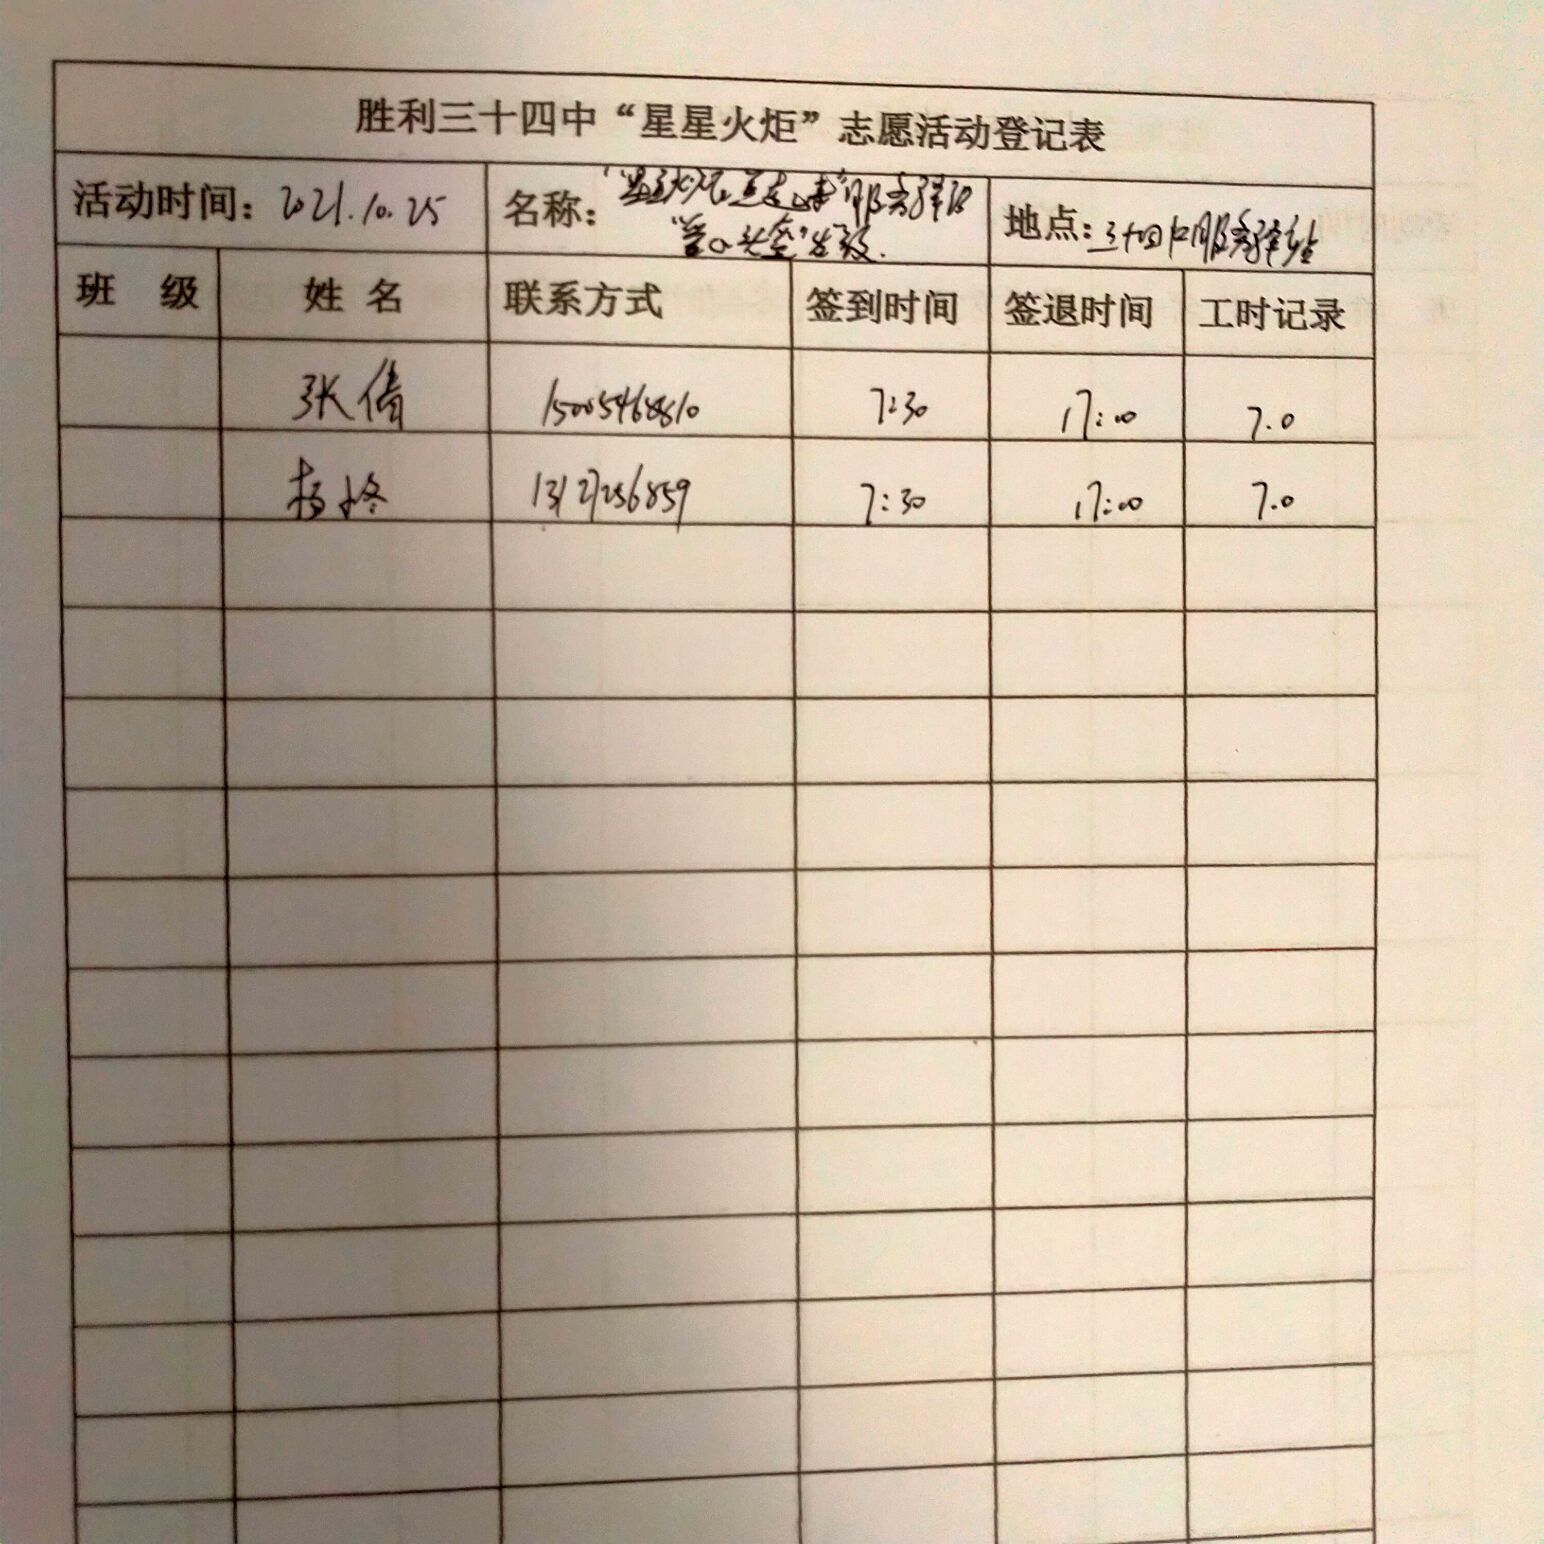 胜利三十四中“星星火炬”志愿活动登记表
活动时间：2021.10.25 名称： 地点：三十四中服务驿站
班 级 姓 名 联系方式 签到时间 签退时间 工时记录
张倩 15005468810 7:30 17:00 7.0
杨 13127256859 7:30 17:00 7.0